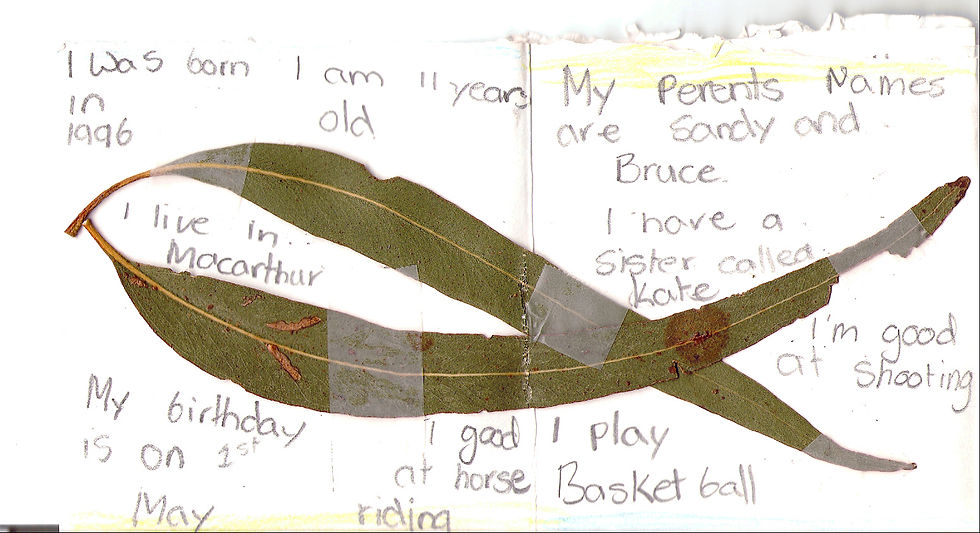 I was born
in
1996
I am 11 years
old
I live in
Macarthur
My birthday
is on 1st
May
I good
at horse
riding
My Perents Names
are Sandy and
Bruce.
I have a
sister called
Kate
I'm good
at shooting
I play
Basket ball